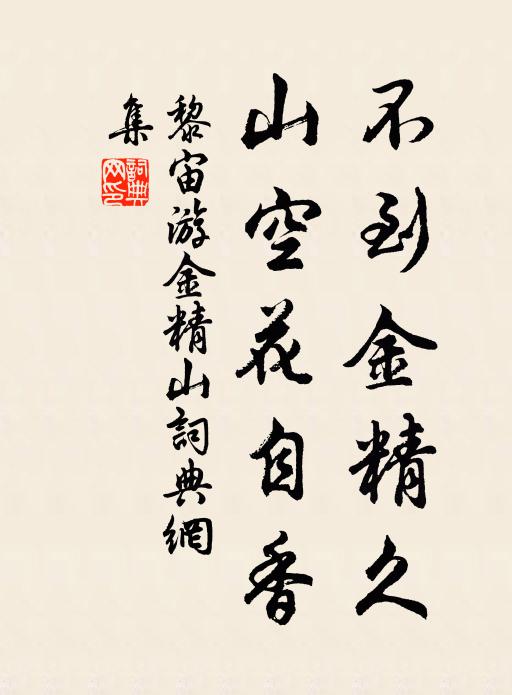 不到金精久
山空花自香
黎宙游金精山詞典網
集
詞典網印